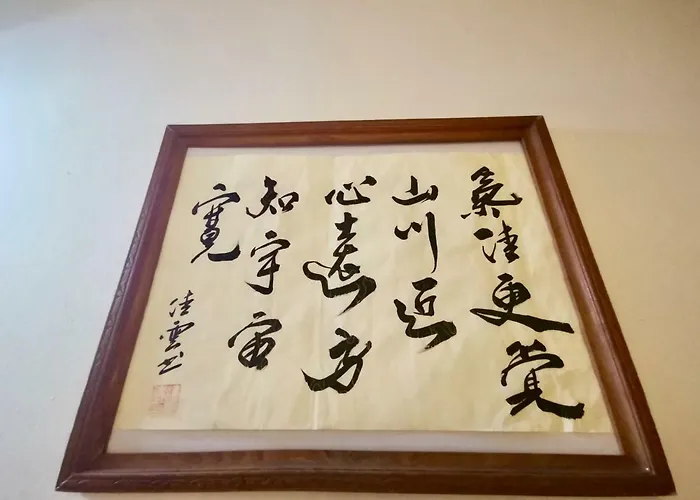 氣清更覚
山川近
心遠方
知宇宙
寬
佳雲书